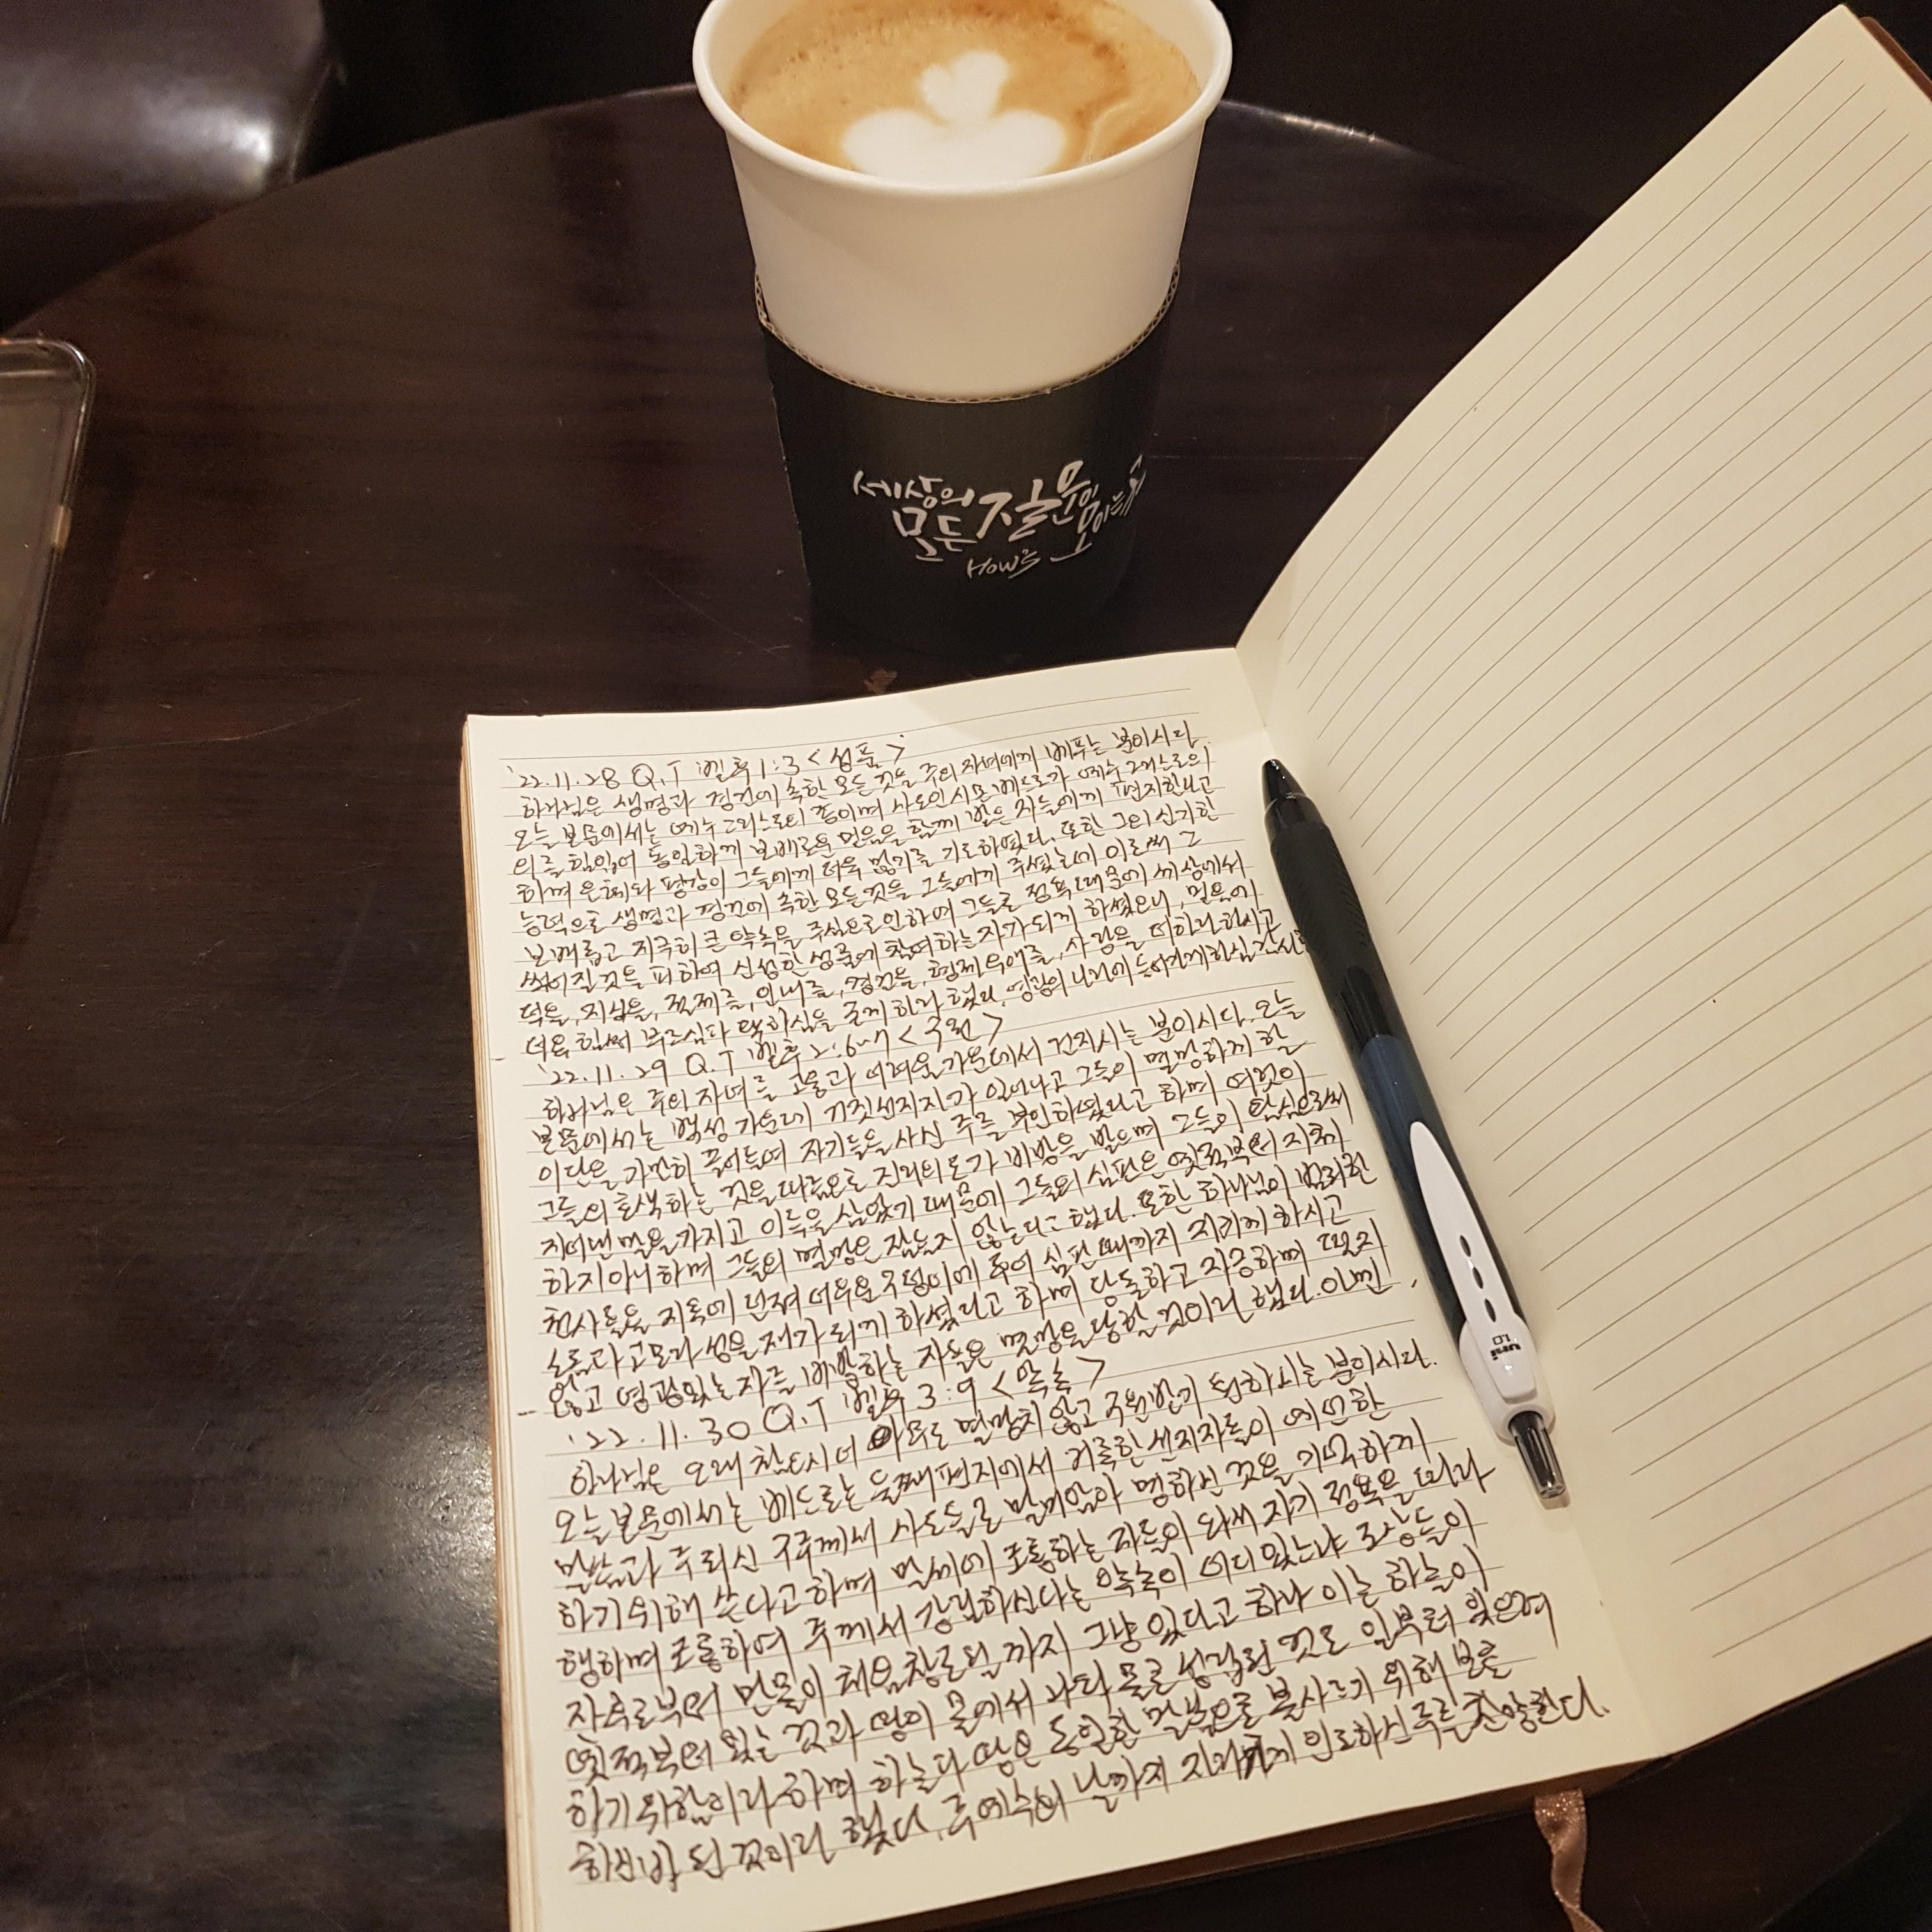 세상의
모든 질문이
모이는 곳
How's
'22.11.28 Q.T 벧후1:3 <성품>
하나님은 생명과 경건에 속한 모든 것을 주의 자녀에게 베푸는 분이시다.
오늘 본문에서는 예수 그리스도의 종이며 사도인 시몬 베드로가 예수 그리스도의
의를 힘입어 동일하게 보배로운 믿음을 함께 받은 자들에게 편지한다고
하며 은혜와 평강이 그들에게 더욱 많기를 기도하였다. 또한 그의 신기한
능력으로 생명과 경건에 속한 모든 것을 그들에게 주셨는데 이로써 그
보배롭고 지극히 큰 약속을 주심으로 인하여 그들로 정욕 때문에 세상에서
썩어질 것을 피하여 신성한 성품에 참여하는 자가 되게 하셨으니, 믿음에
덕을, 지식을, 절제를, 인내를, 경건을, 형제 우애를, 사랑을 더하라 하시고
더욱 힘써 부르심과 택하심을 굳게 하라 했다. 영광의 나라에 들어가게하심 감사
'22.11.29 Q.T 벧후2:6~7 <구원>
하나님은 주의 자녀를 고통과 어려운 가운데서 건지시는 분이시다. 오늘
본문에서는 백성 가운데 거짓선지자가 일어나고 그들이 멸망하게 할
이단을 가만히 끌어들여 자기들을 사신 주를 부인하였다고 하며 여럿이
그들의 호색하는 것을 따름으로 진리의 도가 비방을 받으며 그들이 탐심으로써
지어낸 말을 가지고 이득을 삼았기 때문에 그들의 심판은 옛적부터 지체
하지 아니하며 그들의 멸망은 잠들지 않는다고 했다. 또한 하나님이 범죄한
천사들을 지옥에 던져 어두운 구덩이에 두어 심판 때까지 지키게 하시고
소돔과 고모라 성을 재가 되게 하셨다고 하며 당돌하고 자긍하며 떨지
않고 영광있는 자를 비방하는 자들은 멸망을 당할 것이라 했다.
'22.11.30 Q.T 벧후 3:9 <약속>
하나님은 오래 참으시어 아무도 멸망치 않고 구원받기 원하시는 분이시다.
오늘 본문에서는 베드로는 둘째 편지에서 거룩한 선지자들이 예언한
말씀과 주되신 구주께서 사도들로 말미암아 명하신 것을 기억하게
하기 위해 쓴다고 하며 말세에 조롱하는 자들이 와서 자기 정욕을 따라
행하며 조롱하여 주께서 강림하신다는 약속이 어디 있느냐 조상들이
잔 후로부터 만물이 처음 창조될 때까지 그냥 있다고 하나 이는 하늘이
옛적부터 있는 것과 땅이 물에서 나와 물로 성립된 것도 일부러 잊으려
하기 위함이라 하며 하늘과 땅은 동일한 말씀으로 불사르기 위해 보존
하신 바 된 것이라 했다. 주 예수의 날까지 지키게 인도하신 주를 찬양한다.
uni
1.0